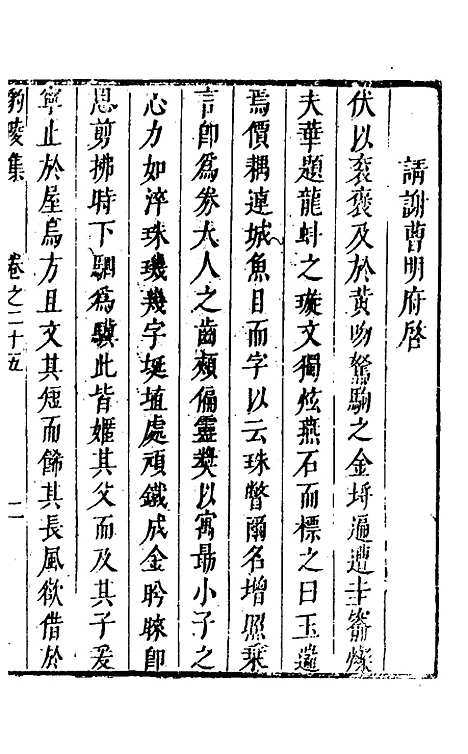 請謝曹明府啓
伏以袞褒及於黃吻駑駒之金埒遍遭圭蓽燦
夫華題龍蚪之璇文獨炫燕石而標之曰玉遽
焉價耦連城魚目而字以云珠瞥爾名增照乘
言卽爲券大人之齒頰偏靈奬以寓勗小子之
心力如淬珠璣幾字埏埴處頑鐵成金盻睞卽
恩剪拂時下駟爲驥此皆嫟其父而及其子爰
寧止於屋烏方且文其短而餙其長風欲借於
豹陵集 卷之二十五 二